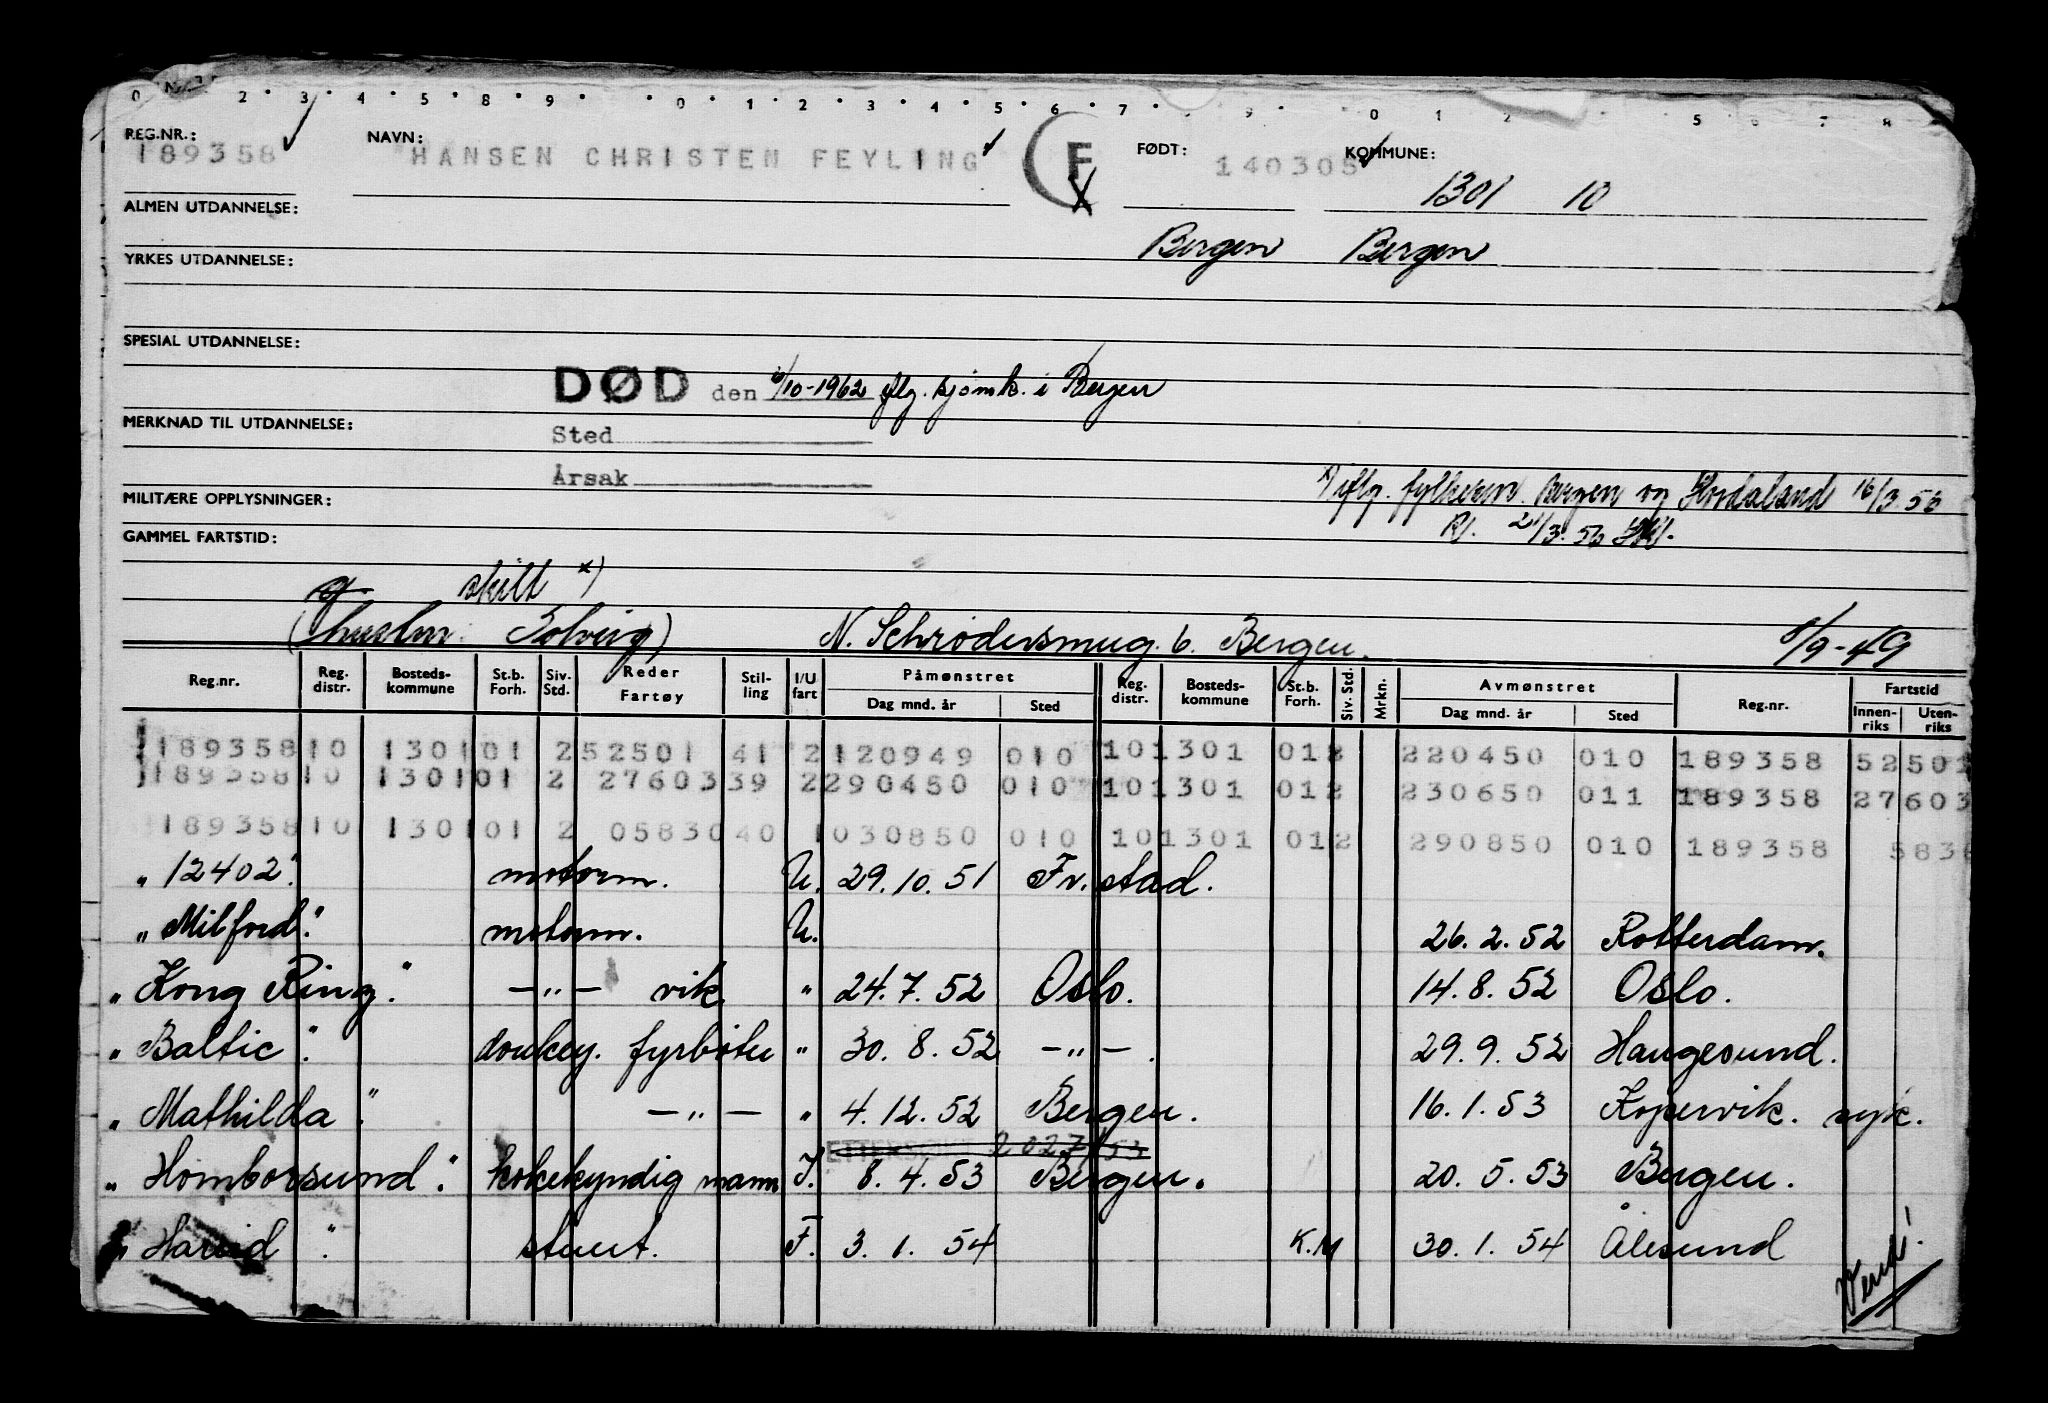 REG.NR.: 189358 NAVN: HANSEN CHRISTEN FEYLING F X FØDT: 140305 KOMMUNE: 1301 10
ALMEN UTDANNELSE:
Bergen Bergen
YRKES UTDANNELSE:
SPESIAL UTDANNELSE:
DØD den 6/10-1962 iflg. sjømk. i Bergen
MERKNAD TIL UTDANNELSE:
Sted
Årsak
x) iflg. fylkesm. Bergen og Hordaland 16/3.56
MILITÆRE OPPLYSNINGER:
21/3.56
GAMMEL FARTSTID:
skilt x)
(hustru: Solveig) N. Schrødersmug. 6. Bergen. 8/9-49
Reg.nr. Reg. distr. Bosteds-kommune St.b. Forh. Siv. Std. Reder Fartøy Stil-ling I/U fart Påmønstret Dag mnd. år Sted Reg. distr. Bosteds-kommune St.b. Forh. Siv. Std. Mrkn. Avmønstret Dag mnd. år Sted Reg.nr. Fartstid Innen-riks Uten-riks
189358 10 1301 01 2 52501 41 2 120949 010 10 1301 01 2 220450 010 189358 52501
189358 10 1301 01 2 27603 39 2 290450 010 10 1301 01 2 230650 011 189358 27603
189358 10 1301 01 2 05830 40 1 030850 010 10 1301 01 2 290850 010 189358 583
"12402". motorm. U. 29.10.51 Fr.stad.
"Milford". motorm. U. 26.2.52 Rotterdam.
"Kong Ring." -"- vik. " 24.7.52 Oslo. 14.8.52 Oslo.
"Baltic". donkey. fyrbøter " 30.8.52 -"-. 29.9.52 Haugesund.
"Mathilda" -"- " 4.12.52 Bergen. 16.1.53 Kopervik. syk.
ETTERSØKT 2027/53
"Homborsund". kokekyndig mann I. 8.4.53 Bergen. 20.5.53 Bergen.
"Hareid" stuert. F. 3.1.54 K.M 30.1.54 Ålesund
Vend!